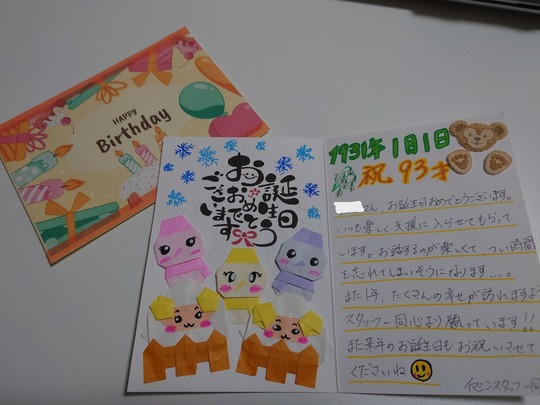 HAPPY
Birthday
お誕生日
おめでとう
ございます
1931年1月1日
祝 93才
さん、お誕生日おめでとうございます。
いつも楽しく支援に入らせてもらって
います。お話するのが楽しくて、つい時間
を忘れてしまいそうになります…。
また1年、たくさんの幸せが訪れますよう
スタッフ一同心より願っています!!
また来年のお誕生日もお祝いさせて
くださいね
スタッフ一同